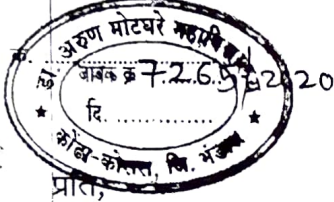 अरुण मोटघरे महाविद्यालय
जावक क्र 7.2.6.
दि.
कोंढा-कोसरा, जि. भंडारा
प्रति,